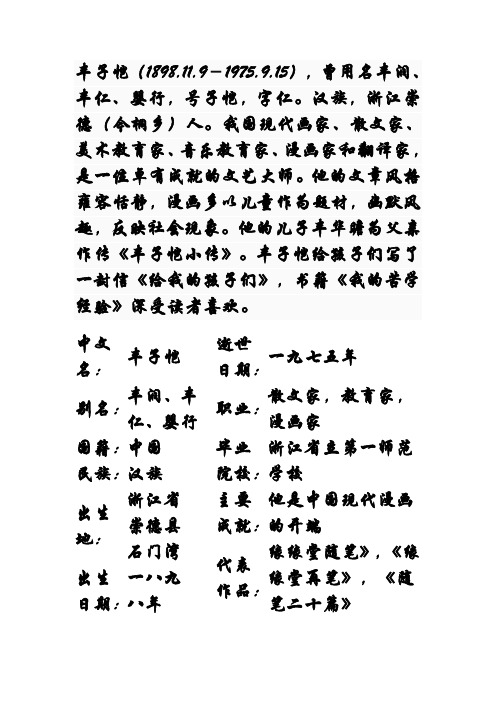 丰子恺（1898.11.9－1975.9.15），曾用名丰润、
丰仁、婴行，号子恺，字仁。汉族，浙江崇
德（今桐乡）人。我国现代画家、散文家、
美术教育家、音乐教育家、漫画家和翻译家，
是一位卓有成就的文艺大师。他的文章风格
雍容恬静，漫画多以儿童作为题材，幽默风
趣，反映社会现象。他的儿子丰华瞻为父亲
作传《丰子恺小传》。丰子恺给孩子们写了
一封信《给我的孩子们》，书籍《我的苦学
经验》深受读者喜欢。
中文名： 丰子恺
逝世日期： 一九七五年
别名： 丰润、丰
仁、婴行
职业： 散文家，教育家，
漫画家
国籍： 中国
毕业院校： 浙江省立第一师范
学校
民族： 汉族
出生地： 浙江省
崇德县
石门湾
主要成就： 他是中国现代漫画
的开端
出生日期： 一八九
八年
代表作品： 缘缘堂随笔》，《缘
缘堂再笔》，《随
笔二十篇》